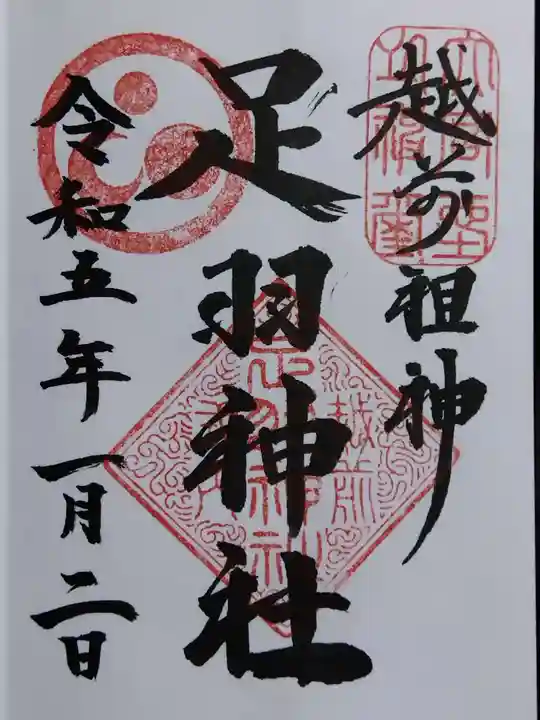 越前祖神
足羽神社
令和五年一月二日
越前
足羽神社